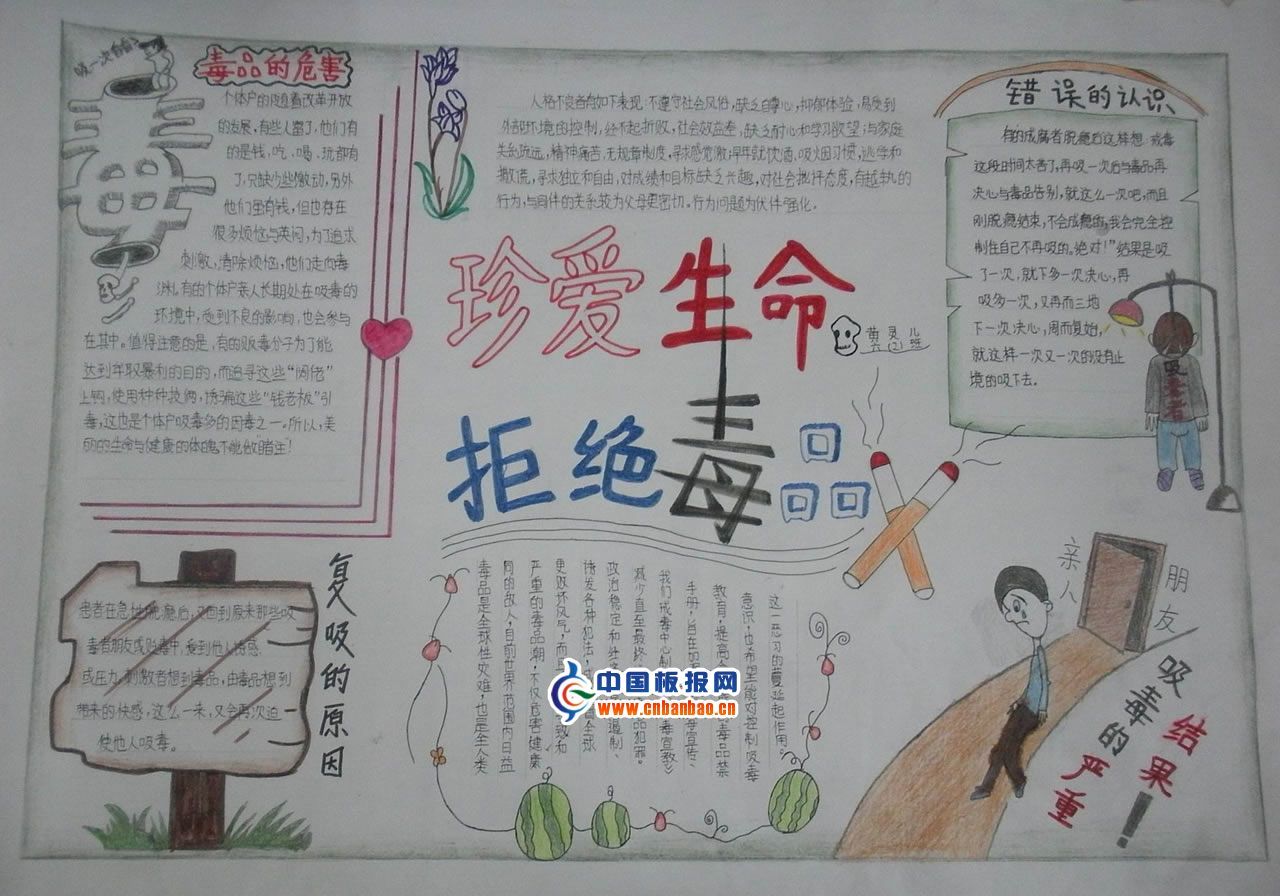 吸一次有何?
毒
毒品的危害
个体户的随着改革开放
的发展,有些人富了,他们有
的是钱,吃、喝、玩都有
了,只缺少些激动,另外
他们虽有钱,但也存在
很多烦恼与苦闷,为了追求
刺激,清除烦恼,他们走向毒
渊。有的个体户亲人长期处在吸毒的
环境中,受到不良的影响,也会参与
在其中。值得注意的是,有的贩毒分子为了能
达到牟取暴利的目的,而追寻这些“阔佬”
上钩,使用种种技俩,诱骗这些“钱老板”引
毒,这也是个体户吸毒多的因毒之一。所以,美
的生命与健康的体魄不能做“赌注”!
人格不良者有如下表现:不遵守社会风俗,缺乏自尊心,抑郁体验,易受到
外部环境的控制,经不起折败,社会效益差,缺乏耐心和学习欲望;与家庭
关系疏远,精神痛苦,无规章制度,寻求感觉激;早年就饮酒、吸烟习惯,逃学和
撒谎,寻求独立和自由,对成绩和目标缺乏兴趣,对社会批评态度,有越轨的
行为,与同伴的关系较为父母更密切。行为问题为伙伴强化。
珍爱生命
黄灵儿
六(2)班
拒绝毒品
错误的认识
有的成瘾者脱瘾后这样想:戒毒
这段时间太苦了,再吸一次后与毒品再
决心与毒品告别,就这么一次吧,而且
刚脱瘾结束,不会成瘾的,我会完全控
制住自己不再吸的。绝对!”结果是吸
了一次,就下多一次决心,再
吸多一次,又再而三地
下一次决心,周而复始,
就这样一次又一次的没有止
境的吸下去。
吸毒者
患者在急性脱瘾后,又回到原来那些吸
毒者朋友或贩毒中,受到他人诱惑
或压力,刺激者想到毒品,由毒品想到
带来的快感,这么一来,又会再次迫
使他人吸毒。
复吸的原因
毒品是全球性灾难,也是全人类
同的敌人,目前世界范围内日益
严重的毒品潮,不仅危害健康
更败坏风气,而且
诱发各种犯法
政治稳定和经
减少直至最终
我们戒毒中心制
手册,旨在加
教育,提高全
意识,也希望能对控制吸毒
这一恶习的蔓延起作用。
中国板报网
www.cnbanbao.cn
亲人
朋友
吸毒的严重
结果!